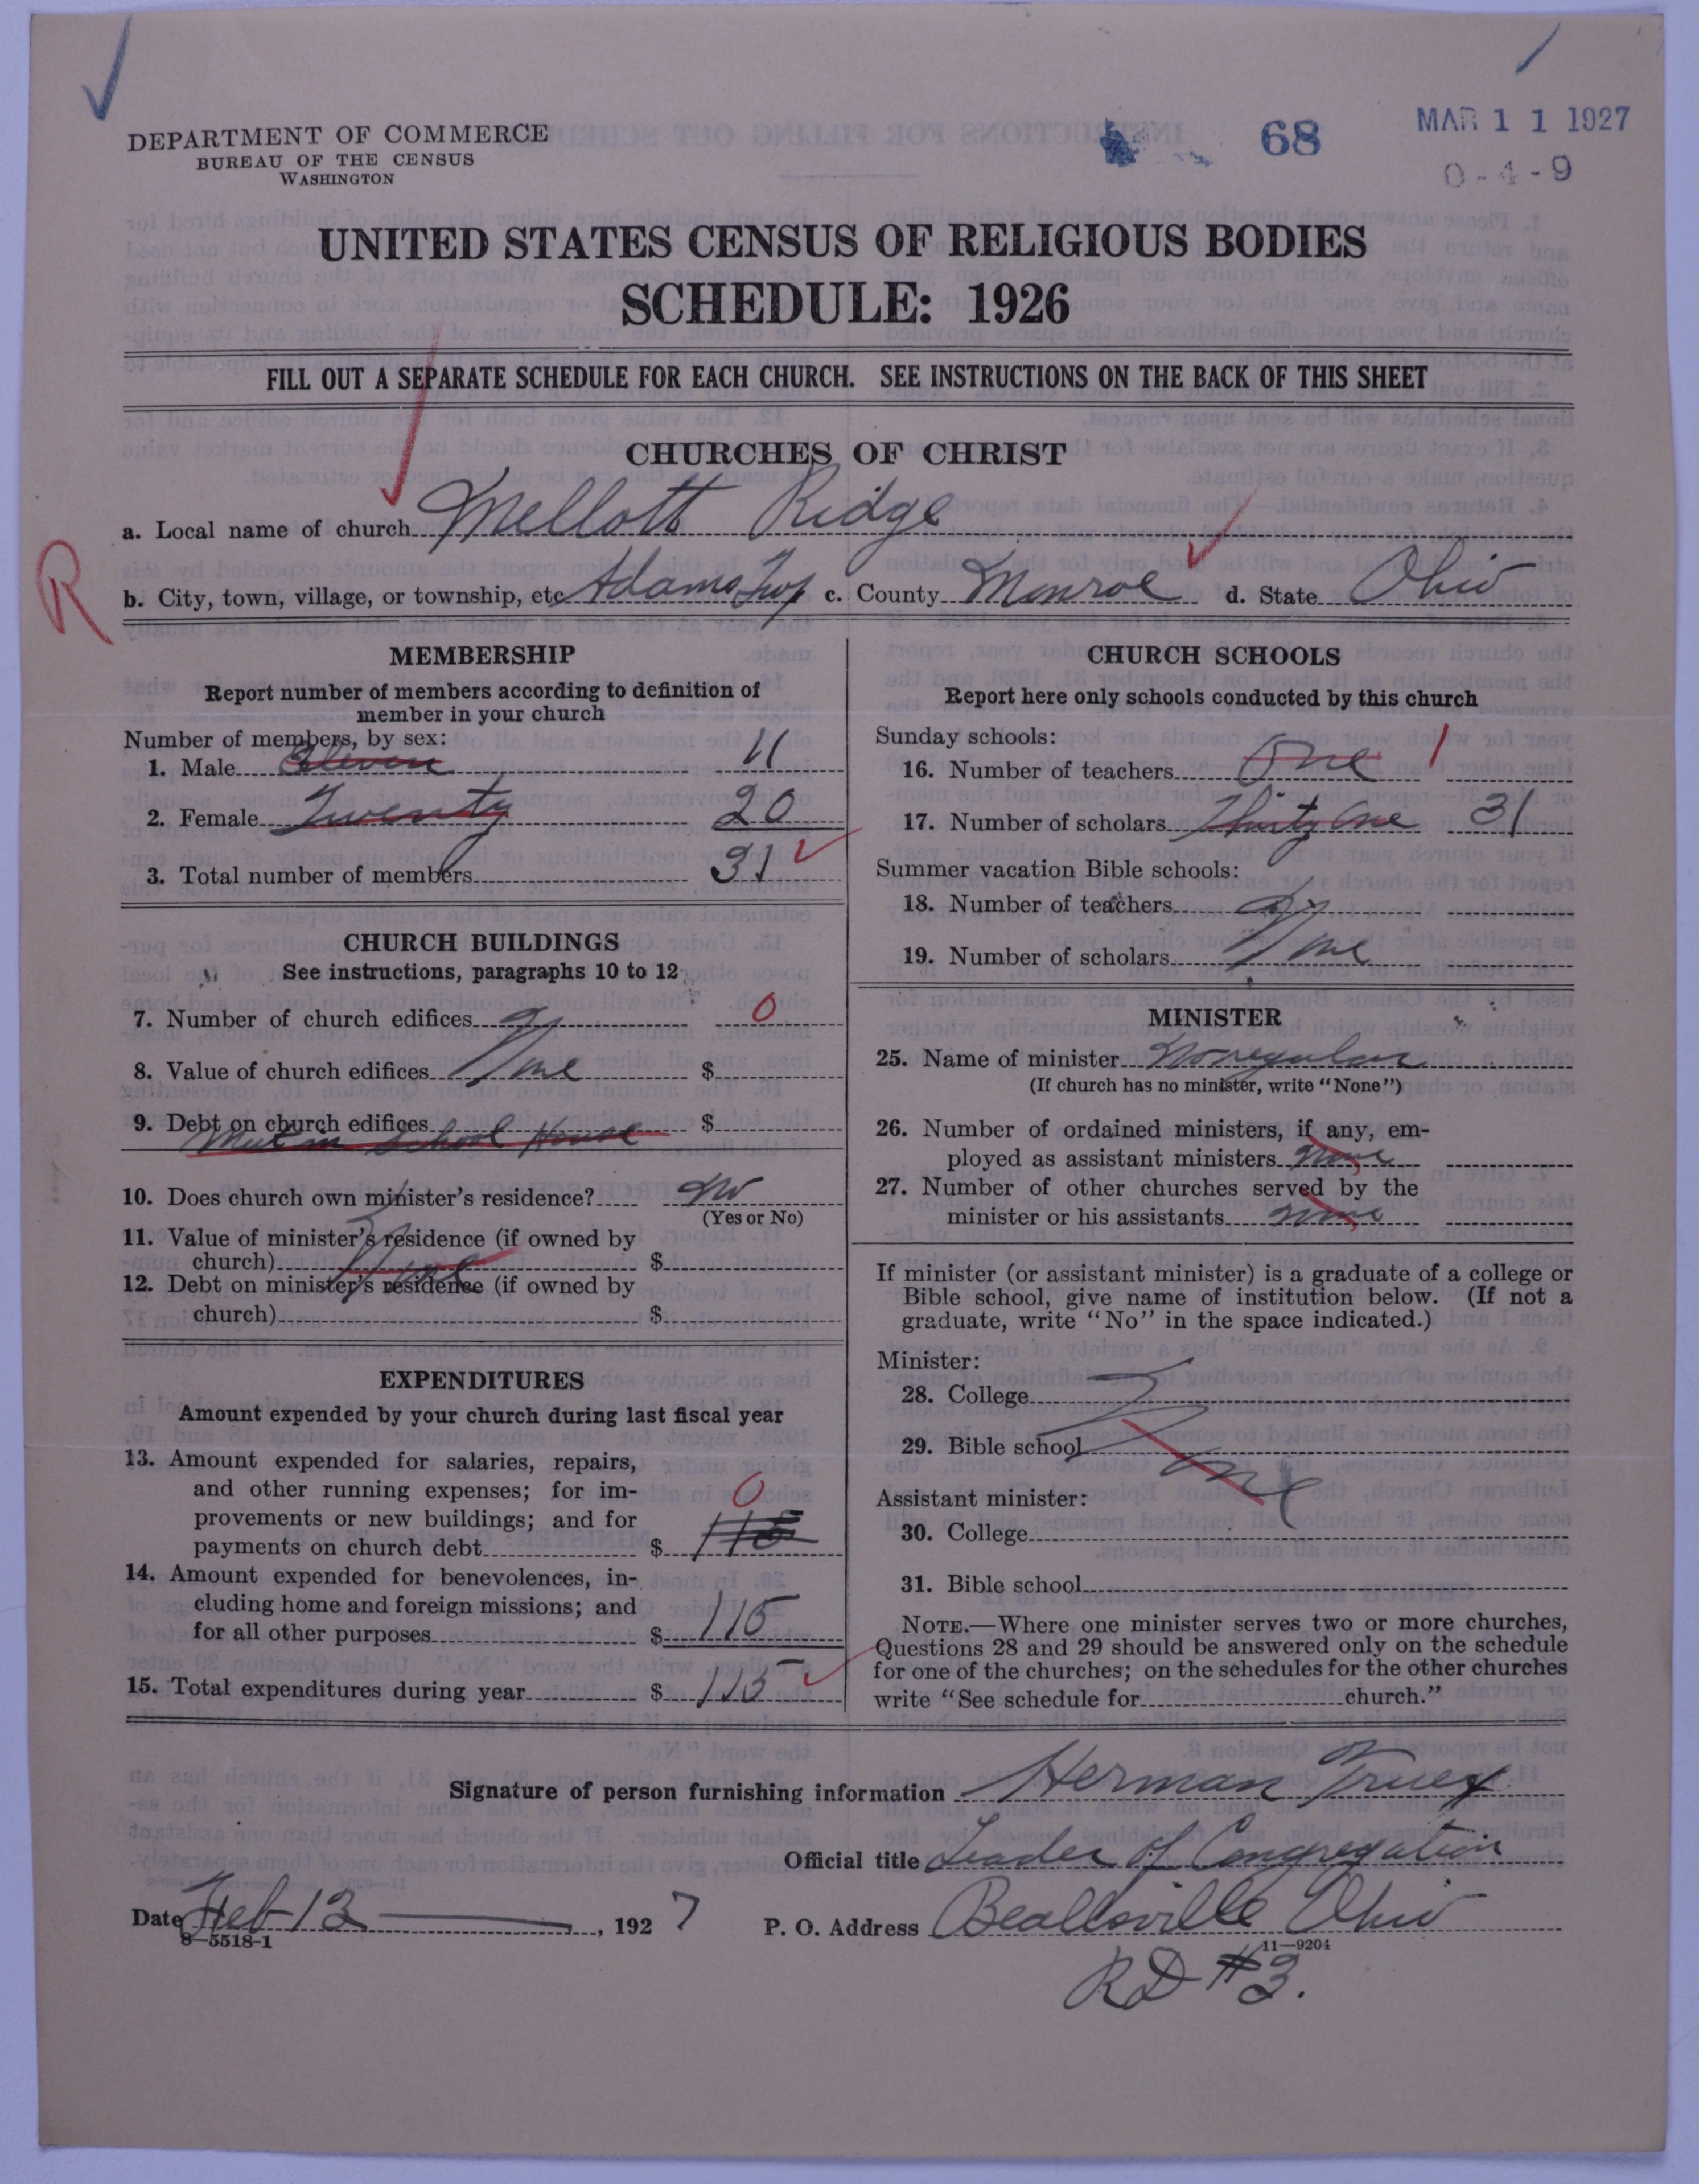 DEPARTMENT OF COMMERCE
BUREAU OF THE CENSUS
WASHINGTON
68
MAR 11 1927
0-4-9
UNITED STATES CENSUS OF RELIGIOUS BODIES
SCHEDULE: 1926
FILL OUT A SEPARATE SCHEDULE FOR EACH CHURCH. SEE INSTRUCTIONS ON THE BACK OF THIS SHEET
CHURCHES OF CHRIST
a. Local name of church Mellott Ridge
R
b. City, town, village, or township, etc. Adams Twp c. County Monroe d. State Ohio
MEMBERSHIP
Report number of members according to definition of
member in your church
Number of members, by sex:
1. Male Eleven 11
2. Female Twenty 20
3. Total number of members 31
CHURCH BUILDINGS
See instructions, paragraphs 10 to 12
7. Number of church edifices 0
8. Value of church edifices None $
9. Debt on church edifices $
Meet in School House
10. Does church own minister's residence? No
(Yes or No)
11. Value of minister's residence (if owned by
church) None $
12. Debt on minister's residence (if owned by
church) $
EXPENDITURES
Amount expended by your church during last fiscal year
13. Amount expended for salaries, repairs,
and other running expenses; for im-
provements or new buildings; and for 0
payments on church debt $ 115
14. Amount expended for benevolences, in-
cluding home and foreign missions; and
for all other purposes $ 115
15. Total expenditures during year $ 115
CHURCH SCHOOLS
Report here only schools conducted by this church
Sunday schools:
16. Number of teachers One 1
17. Number of scholars Thirty One 31
Summer vacation Bible schools:
18. Number of teachers
19. Number of scholars None
MINISTER
25. Name of minister No regular
(If church has no minister, write "None")
26. Number of ordained ministers, if any, em-
ployed as assistant ministers None
27. Number of other churches served by the
minister or his assistants None
If minister (or assistant minister) is a graduate of a college or
Bible school, give name of institution below. (If not a
graduate, write "No" in the space indicated.)
Minister:
28. College
29. Bible school None
Assistant minister:
30. College
31. Bible school
NOTE.—Where one minister serves two or more churches,
Questions 28 and 29 should be answered only on the schedule
for one of the churches; on the schedules for the other churches
write "See schedule for church."
Signature of person furnishing information Herman Truex
Official title Leader of Congregation
Date Feb 13, 1927 P. O. Address Beallsville Ohio
8—5518-1
11—9204
RD #3.